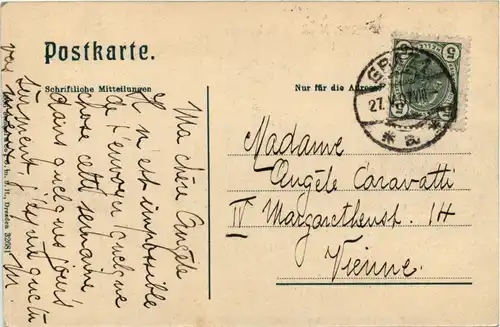 Postkarte.
Schriftliche Mitteilungen
Nur für die Adresse
Ma chère Angèle
Il m'est impossible
de t'envoyer quelque
chose cette semaine
dans quelques jours
sûrement,
M.
Madame
Angèle Caravatti
IV Margarethenst. 14
Vienne.
GRAZ
27.
HELLER
5
Dresden 32981